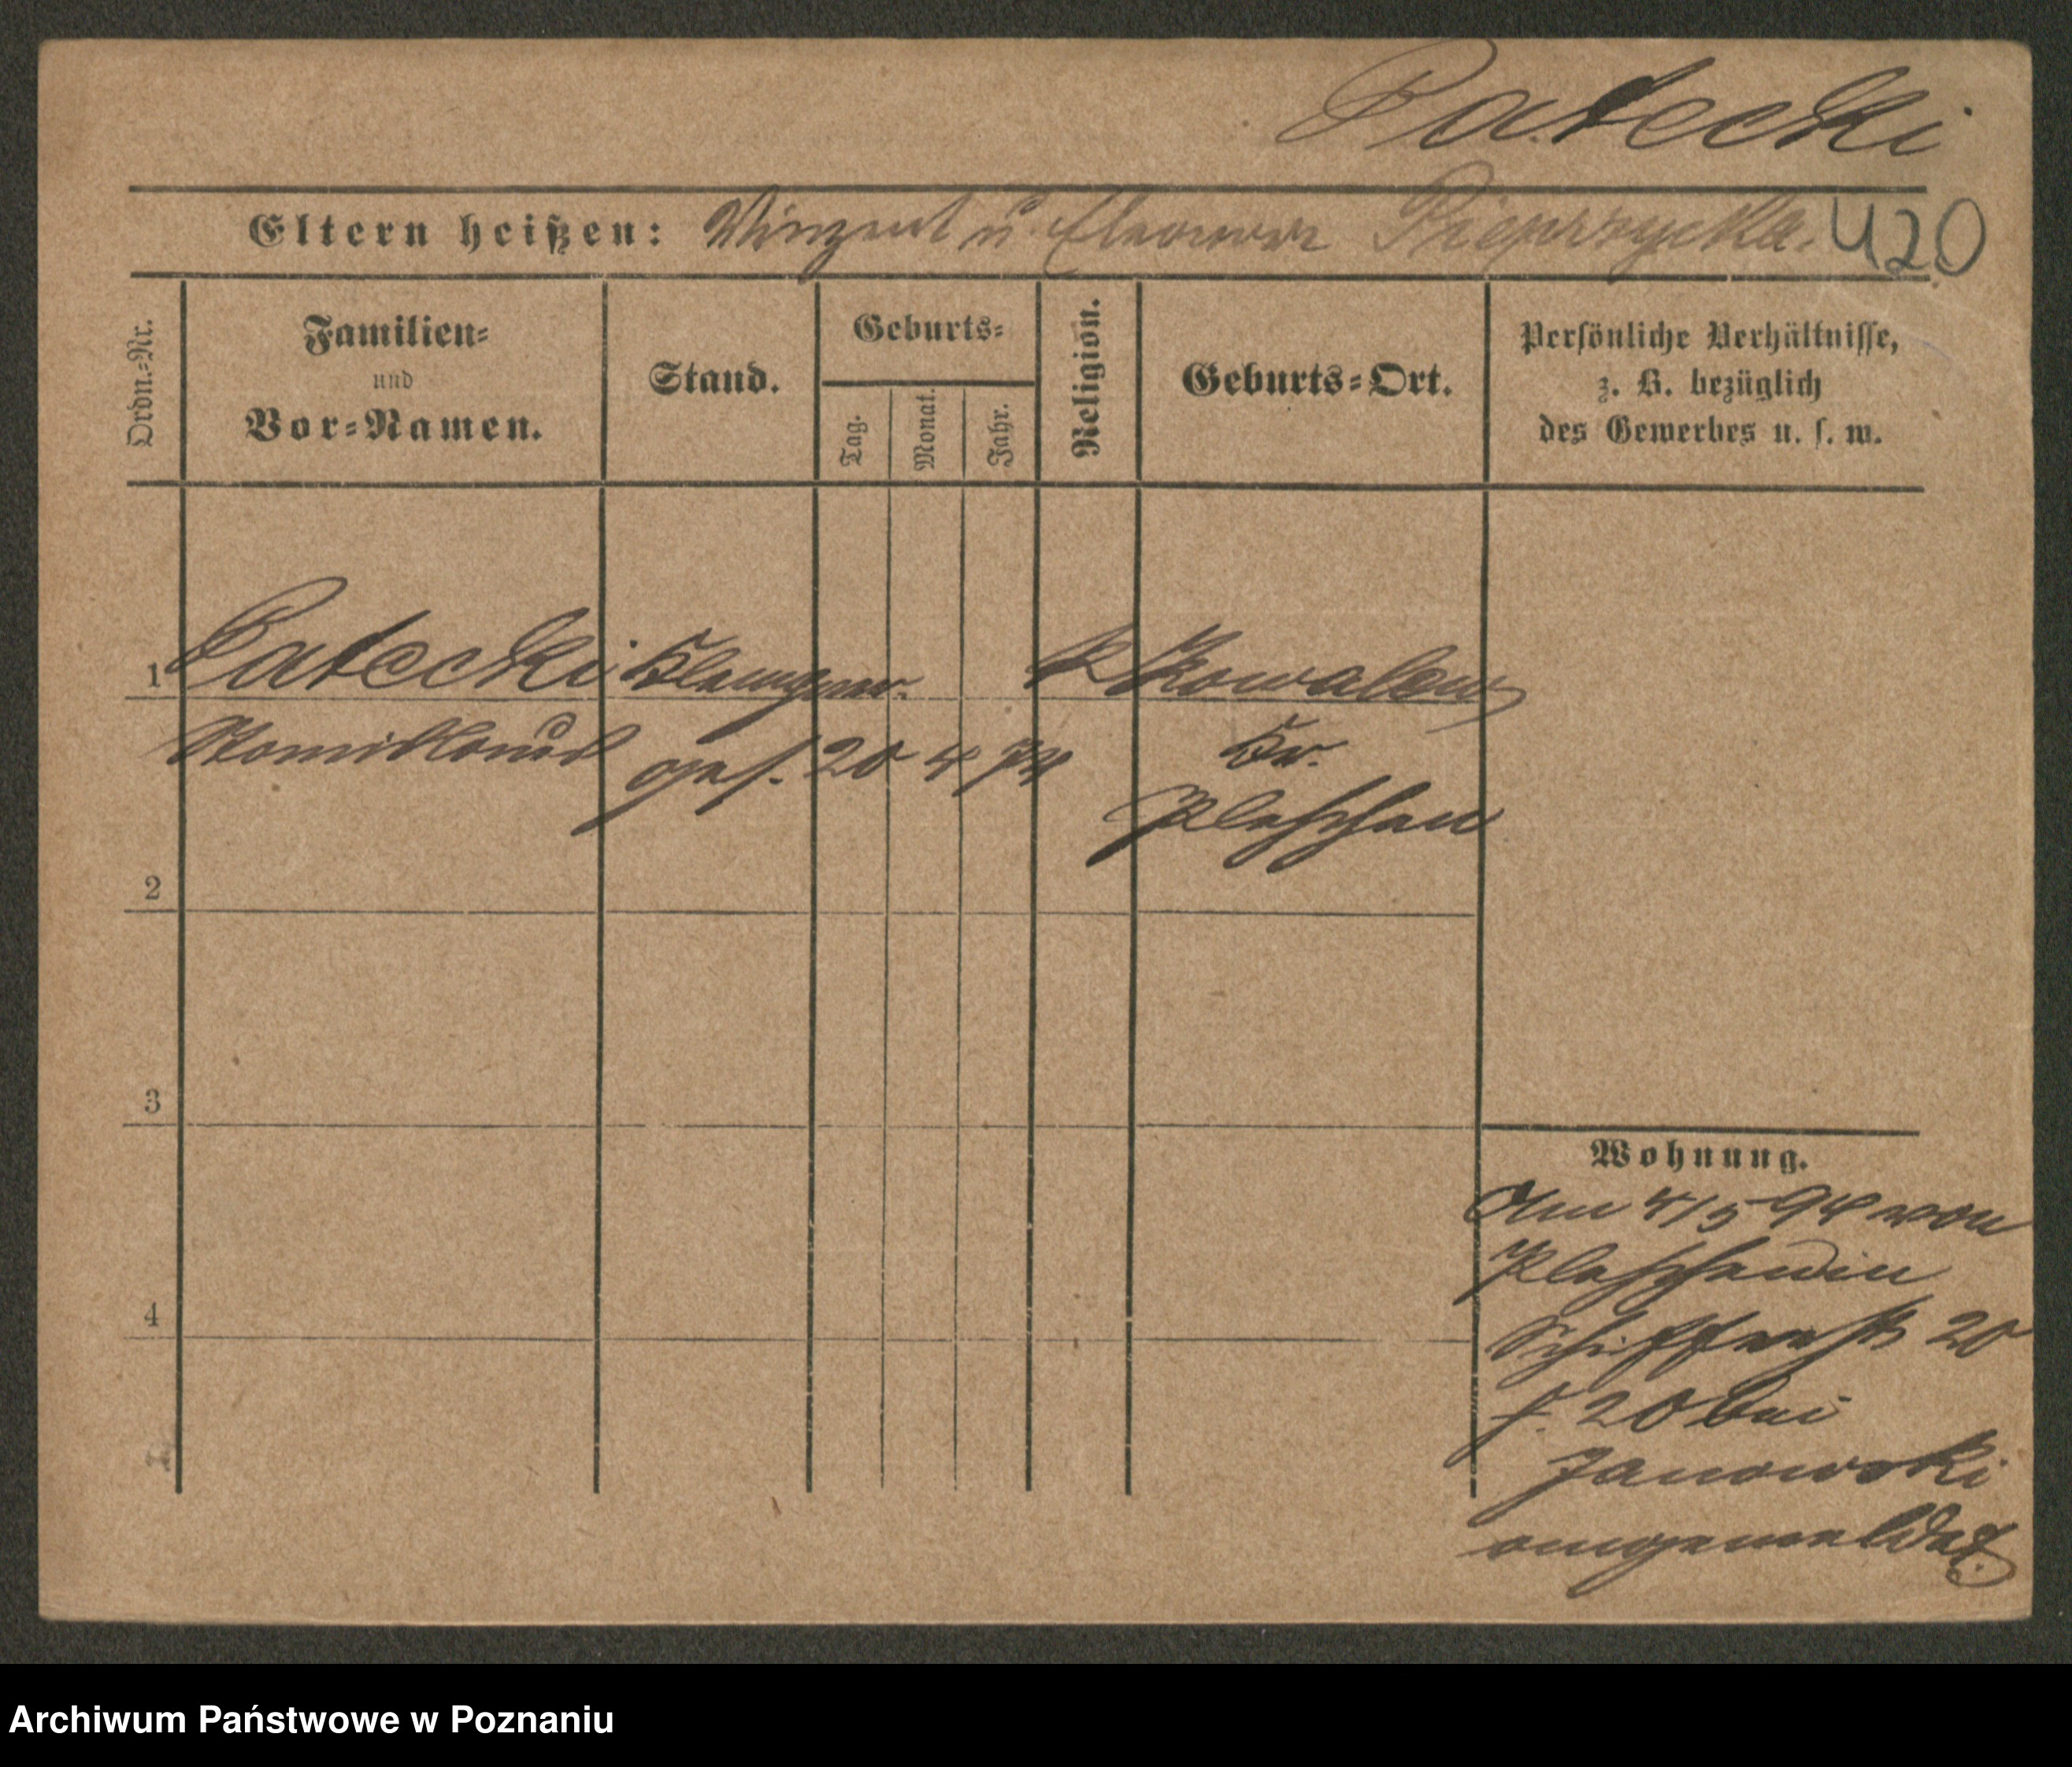 Patecki
Eltern heißen: Vinzent u Eleonora Pieprzycka. 420
Ordn.-Nr.
Familien-
und
Vor-Namen.
Stand.
Geburts-
Tag.
Monat.
Jahr.
Religion.
Geburts-Ort.
Persönliche Verhältnisse,
z. B. bezüglich
des Gewerbes u. s. w.
1 Patecki Klempner. K Kowalew
ges. 20 4 74 Kr.
Pleschen
2
3
4
Wohnung.
Am 4/5 94 von
Pleschen in
Schifferstr 20
b. 20 bei
Janowski
angemeldet.
Archiwum Państwowe w Poznaniu